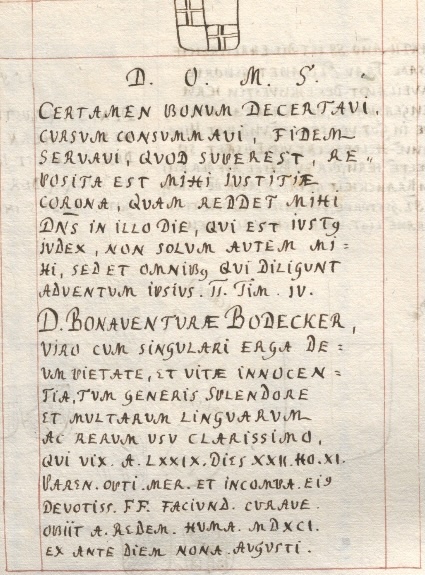 D. O. M. S.
CERTAMEN BONUM DECERTAVI.
CURSUM CONSUMMAVI, FIDEM
SERVAVI, QUOD SUPEREST, RE„
POSITA EST MIHI IUSTITIÆ
CORONA, QUAM REDDET MIHI
DN̄S IN ILLO DIE, QUI EST IUSTꝰ
IUDEX, NON SOLUM AUTEM MI=
HI, SED ET OMNIBꝰ QUI DILIGUNT
ADVENTUM IPSIUS. II. TIM. IV.
D. BONAVENTURÆ BODECKER,
VIRO CUM SINGULARI ERGA DE=
UM PIETATE, ET VITÆ INNOCEN=
TIA, TUM GENERIS SPLENDORE
ET MULTARUM LINGUARUM
AC RERUM USU CLARISSIMO,
QUI VIX. A. LXXIX. DIES XXII. HO. XI.
PAREN. OPTI. MER. ET INCOMPA. EIꝰ
DEVOTISS. FF. FACIUND. CURAVE.
OBIIT A. REDEM. HUMA. MDXCI.
EX ANTE DIEM NONA. AUGUSTI.